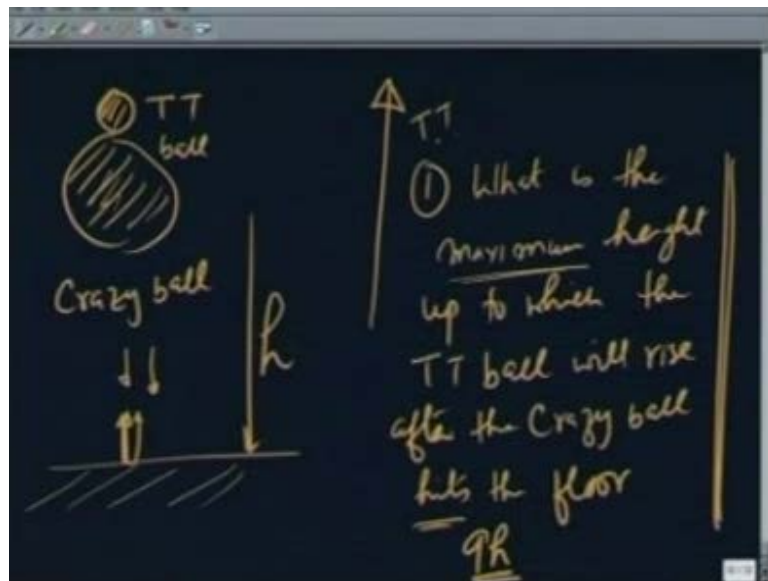 TT
ball
Crazy ball
h
TT
① What is the
maximum height
up to which the
TT ball will rise
after the Crazy ball
hits the floor
9h